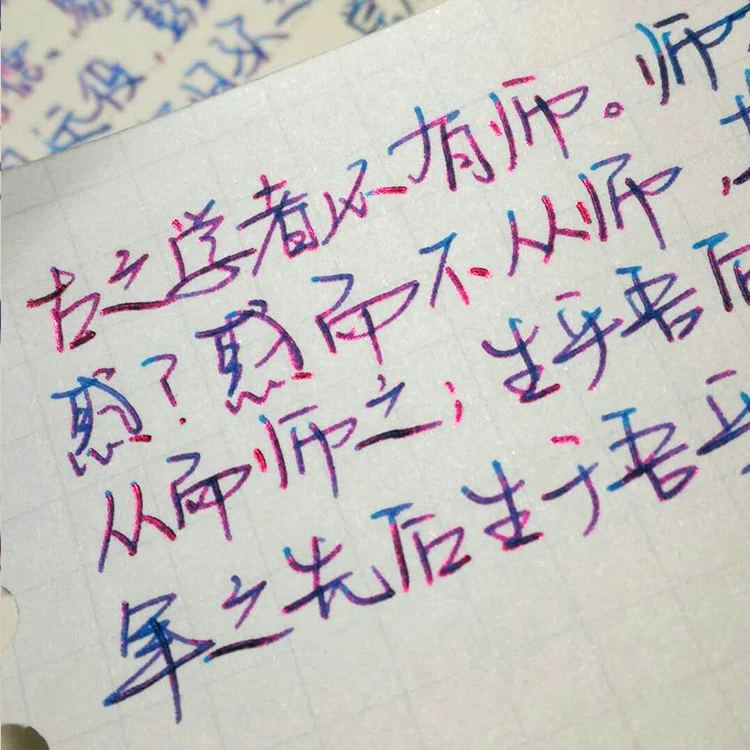 古之学者必有师。师
惑?惑而不从师,
从而师之;生乎吾后
年之先后生于吾